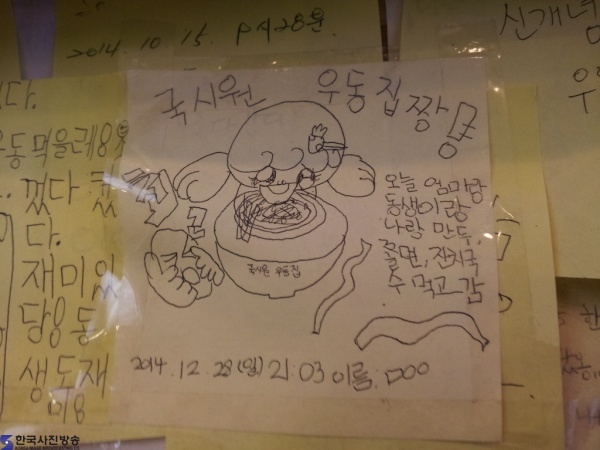 2014. 10. 15. PM 28분
신개념
다.
우동먹을래
국시원 우동집 짱!
껐다 켰
다.
재미있
당용동
생도재
최고
국시원 우동집
오늘 엄마랑
동생이랑
나랑 만두,
쫄면, 잔치국
수 먹고 감
2014. 12. 28(일) 21:03 이름: ㅁㅇㅇ
한국사진방송